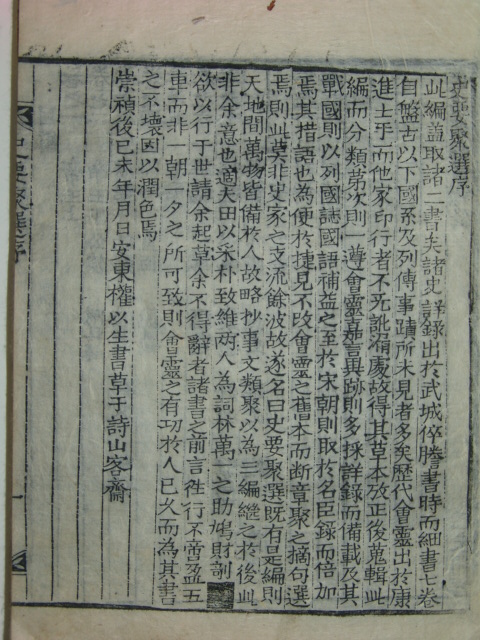 史要聚選序
此編蓋取諸二書矣諸史詳錄出於武城倅謄書時而細書七卷
自盤古以下國系及列傳事蹟所未見者多矣歷代會靈出於康
進士乎而他家印行者不旡訛漏處故得其草本攷正後蒐輯此
編而分類苐次則一遵會靈嘉言異跡則多採詳錄而備載及其
戰國則以列國誌國語補益之至於宋朝則取於名臣錄而倍加
焉其措語也為便於捷見不改會靈之舊本而断章聚之摘句選
焉則此莫非史家之支流餘波故遂名曰史要聚選既有是編則
天地間萬物皆備於人故略抄事文類聚以為三編縫之於後此
非余意也適夫田以采朴致維両人為詞林萬一之助鳩財訓
欲以行于世請余起草余不得辭者諸書之前言徃行不啻盈五
車而非一朝一夕之所可致則會靈之有功於人已久而為其書
之不壞因以潤色焉
崇禎後己未年月日安東權以生書草于詩山客齋
史要聚選序
一